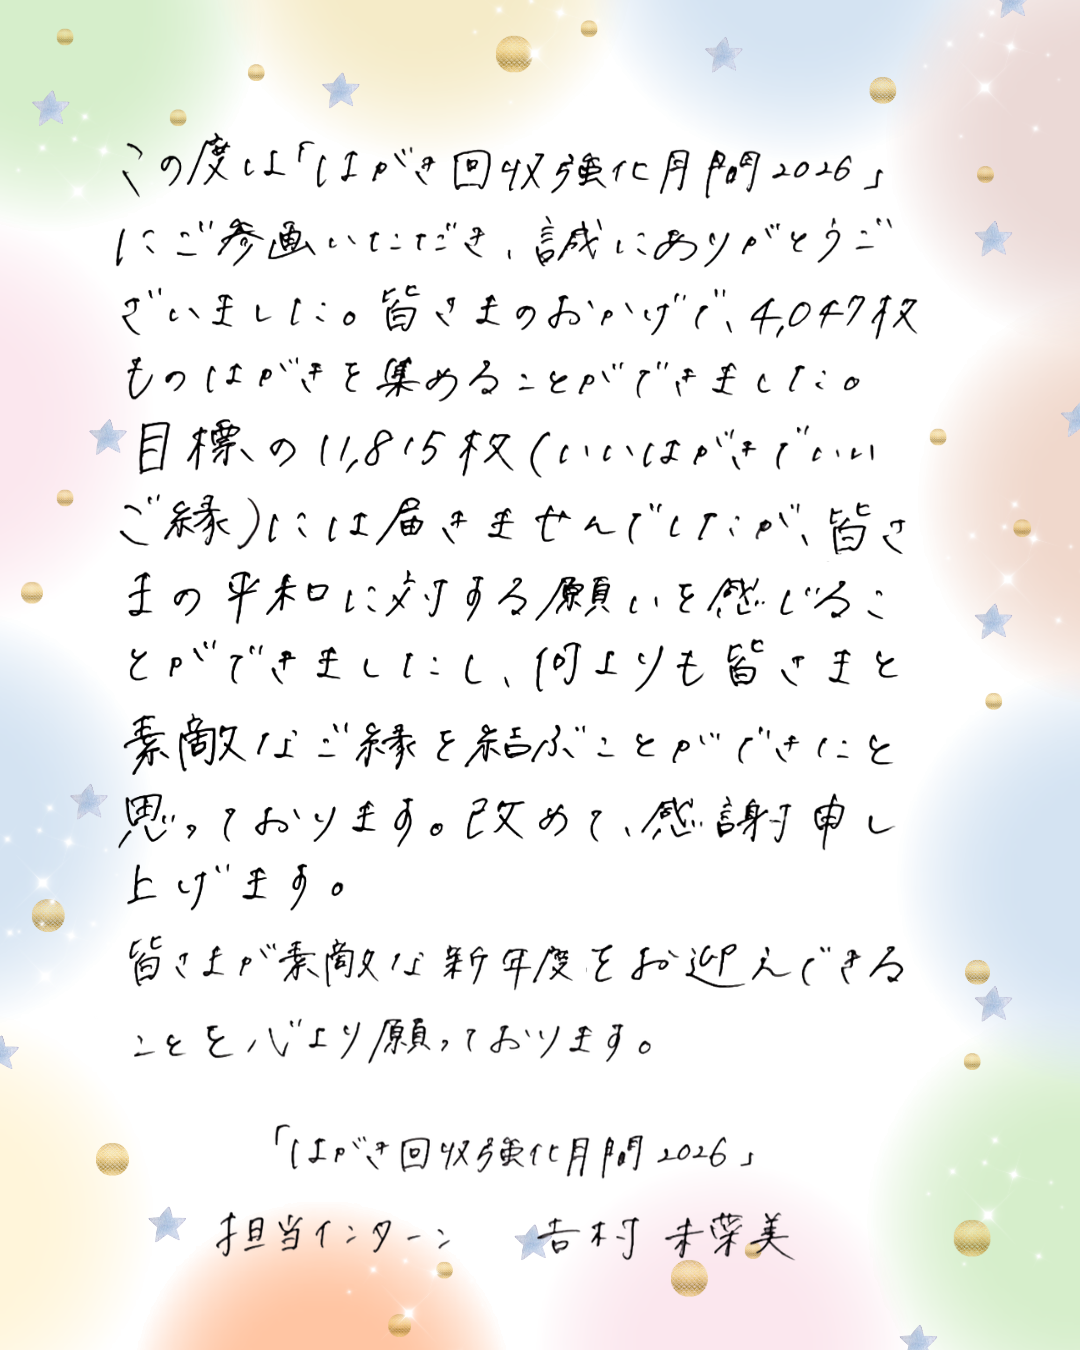 この度は「はがき回収強化月間2026」
にご参画いただき、誠にありがとうご
ざいました。皆さまのおかげで、4,047枚
ものはがきを集めることができました。
目標の11,815枚(いいはがきでいい
ご縁)には届きませんでしたが、皆さ
まの平和に対する願いを感じるこ
とができましたし、何よりも皆さまと
素敵なご縁を結ぶことができたと
思っております。改めて、感謝申し
上げます。
皆さまが素敵な新年度をお迎えできる
ことを心より願っております。
「はがき回収強化月間2026」
担当インターン 吉村 未菜美